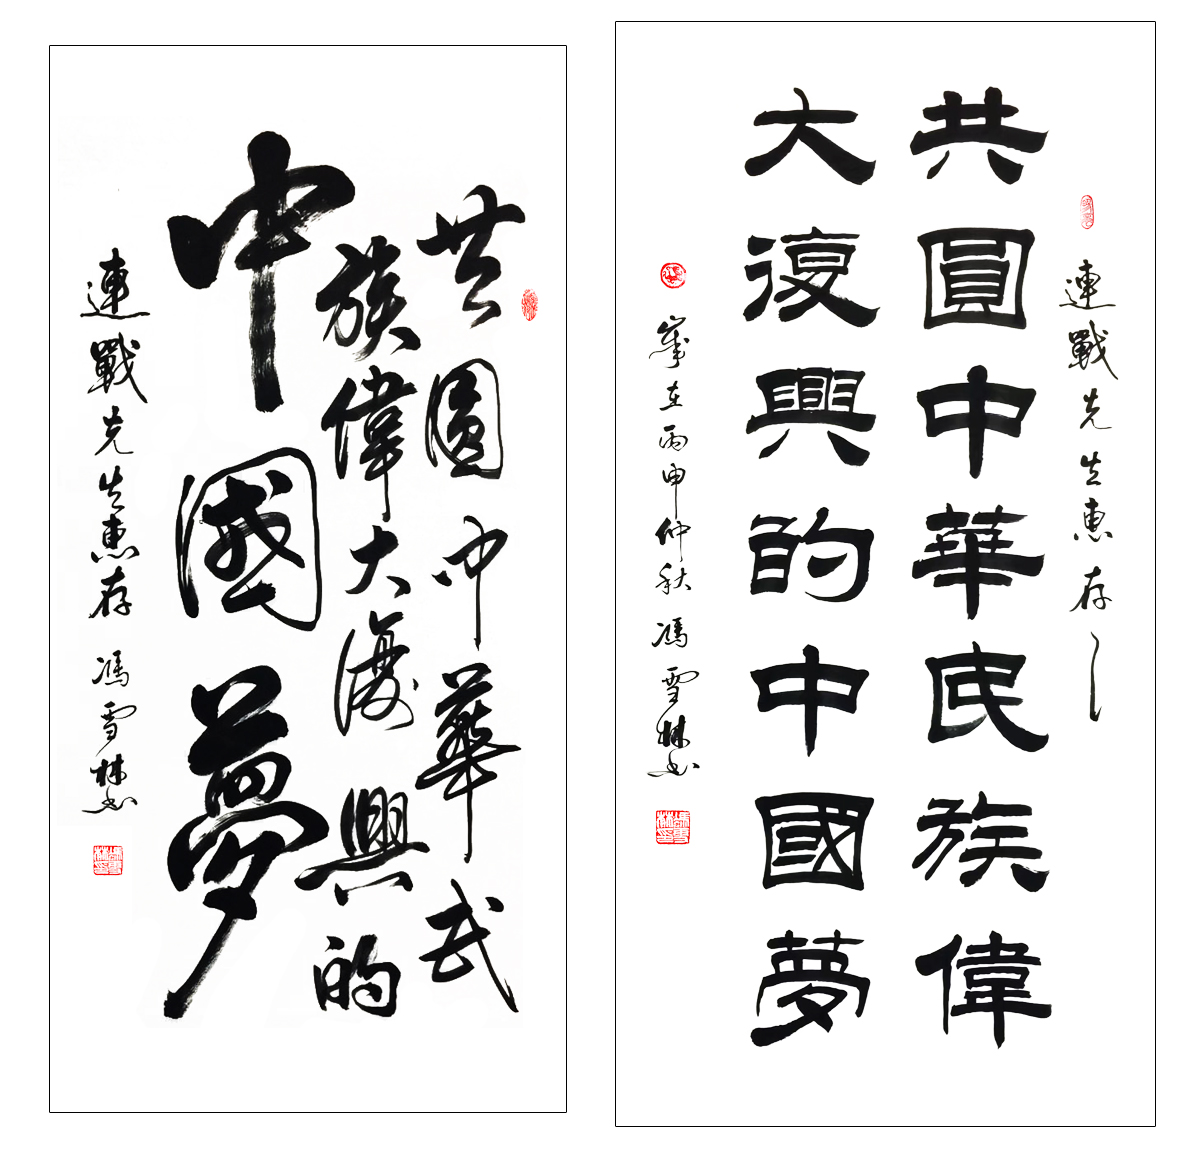 共圓中華民
族偉大復興的
中國夢
連戰先生惠存 馮雪林書
連戰先生惠存
共圓中華民族偉
大復興的中國夢
歲在丙申仲秋 馮雪林書